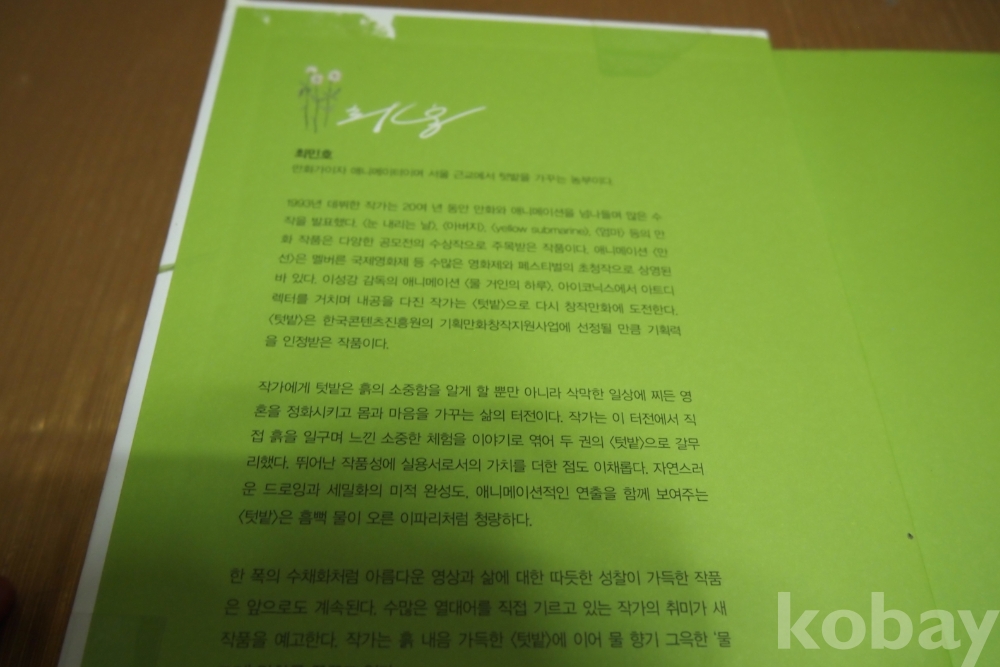 최민호
만화가이자 애니메이터이며 서울 근교에서 텃밭을 가꾸는 농부이다.
1993년 데뷔한 작가는 20여 년 동안 만화와 애니메이션을 넘나들며 많은 수
작을 발표했다. 〈눈 내리는 날〉, 〈아버지〉, 〈yellow submarine〉, 〈엄마〉 등의 만
화 작품은 다양한 공모전의 수상작으로 주목받은 작품이다. 애니메이션 〈만
선〉은 멜버른 국제영화제 등 수많은 영화제와 페스티벌의 초청작으로 상영된
바 있다. 이성강 감독의 애니메이션 〈물 거인의 하루〉, 아이코닉스에서 아트디
렉터를 거치며 내공을 다진 작가는 〈텃밭〉으로 다시 창작만화에 도전한다.
〈텃밭〉은 한국콘텐츠진흥원의 기획만화창작지원사업에 선정될 만큼 기획력
을 인정받은 작품이다.
작가에게 텃밭은 흙의 소중함을 알게 할 뿐만 아니라 삭막한 일상에 찌든 영
혼을 정화시키고 몸과 마음을 가꾸는 삶의 터전이다. 작가는 이 터전에서 직
접 흙을 일구며 느낀 소중한 체험을 이야기로 엮어 두 권의 〈텃밭〉으로 갈무
리했다. 뛰어난 작품성에 실용서로서의 가치를 더한 점도 이채롭다. 자연스러
운 드로잉과 세밀화의 미적 완성도, 애니메이션적인 연출을 함께 보여주는
〈텃밭〉은 흠뻑 물이 오른 이파리처럼 청량하다.
한 폭의 수채화처럼 아름다운 영상과 삶에 대한 따듯한 성찰이 가득한 작품
은 앞으로도 계속된다. 수많은 열대어를 직접 기르고 있는 작가의 취미가 새
작품을 예고한다. 작가는 흙 내음 가득한 〈텃밭〉에 이어 물 향기 그윽한 '물
kobay